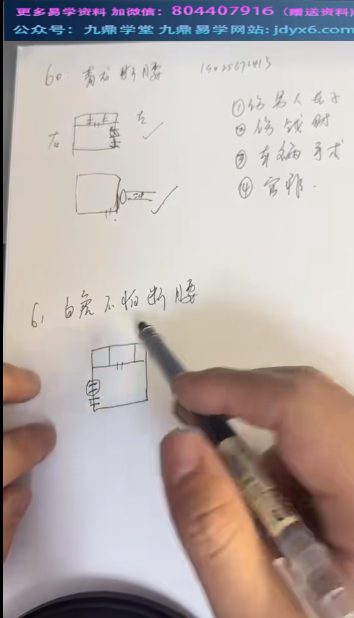 更多易学资料 加微信：804407916（赠送资料）
公众号：九鼎学堂 九鼎易学网站：jdyx6.com
60 青龙断腰
右 左
①伤男人长子
②伤钱财
③车祸手术
④官非.
61 白虎不怕断腰